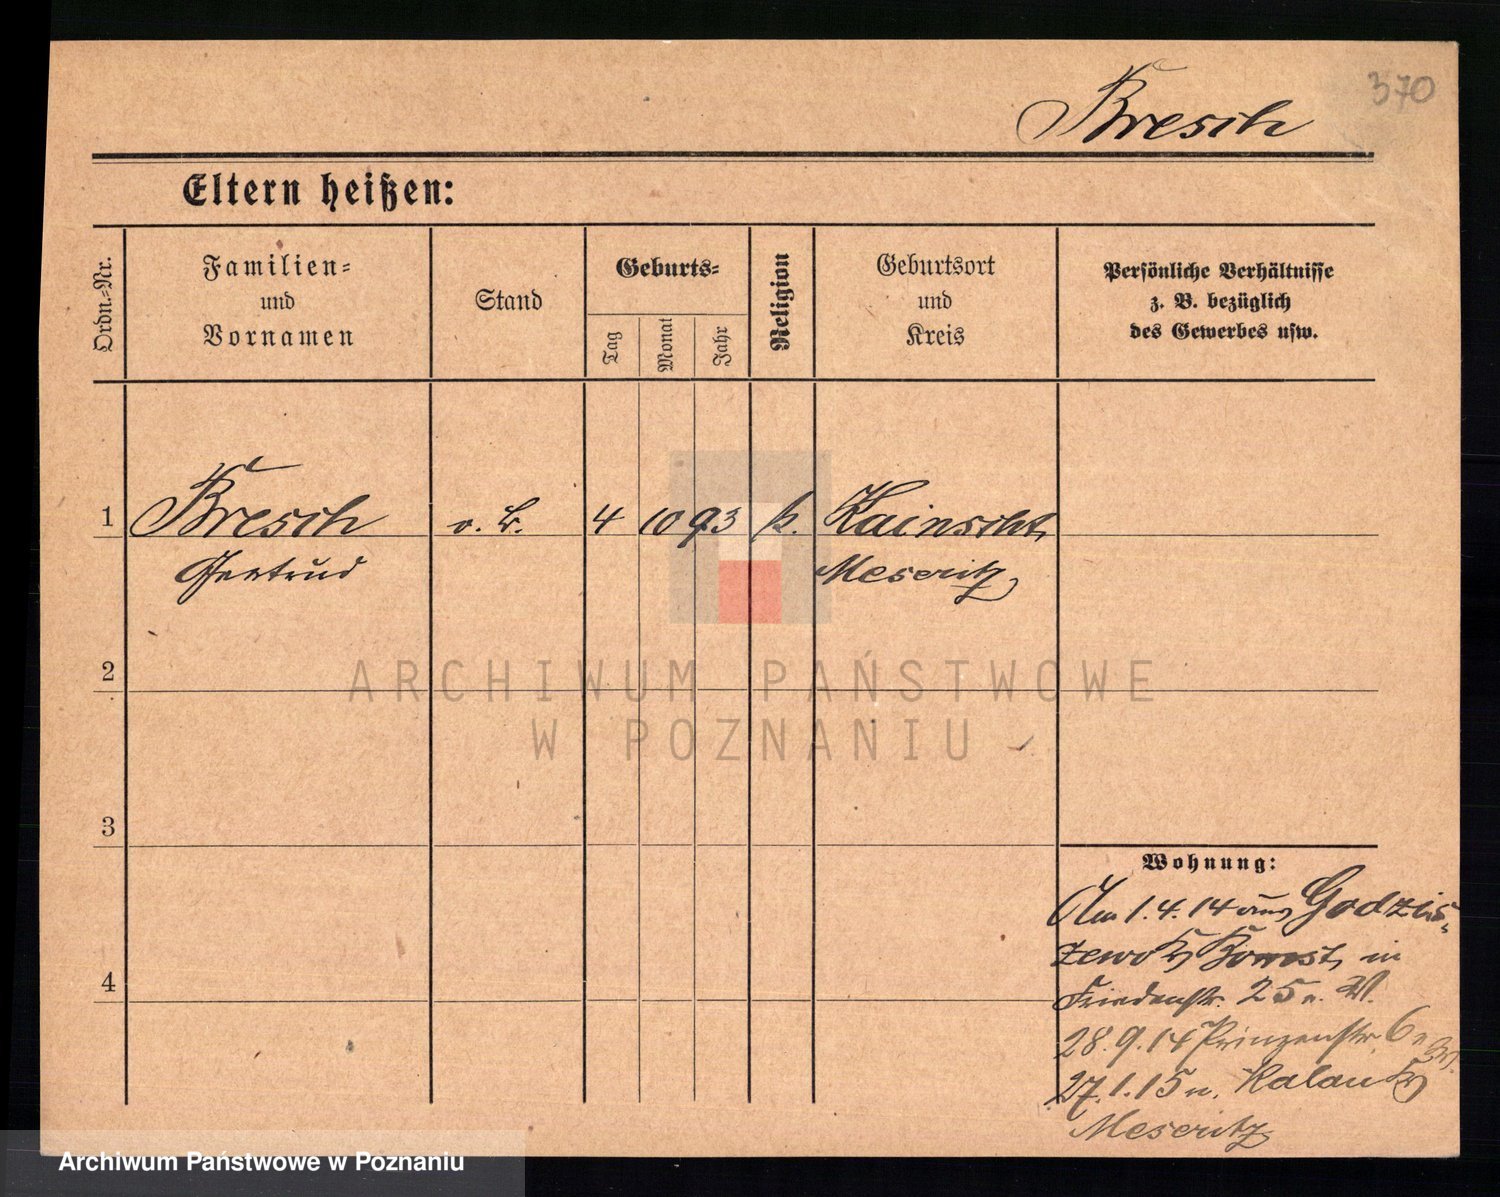 370
Bresch
Eltern heißen:
Ordn.-Nr.
Familien-
und
Vornamen
Stand
Geburts-
Tag
Monat
Jahr
Religion
Geburtsort
und
Kreis
Persönliche Verhältnisse
z. B. bezüglich
des Gewerbes usw.
1 Bresch 4 10 93 k. Kainscht
Gertrud Meseritz
2
3
4
Wohnung:
Am 1.4.14 aus Godzis-
zewo Bomst, in
Friedenstr. 25
28.9.14 Prinzenstr. 6
27.1.15 n. Kalau
Meseritz
ARCHIWUM PAŃSTWOWE
W POZNANIU
Archiwum Państwowe w Poznaniu